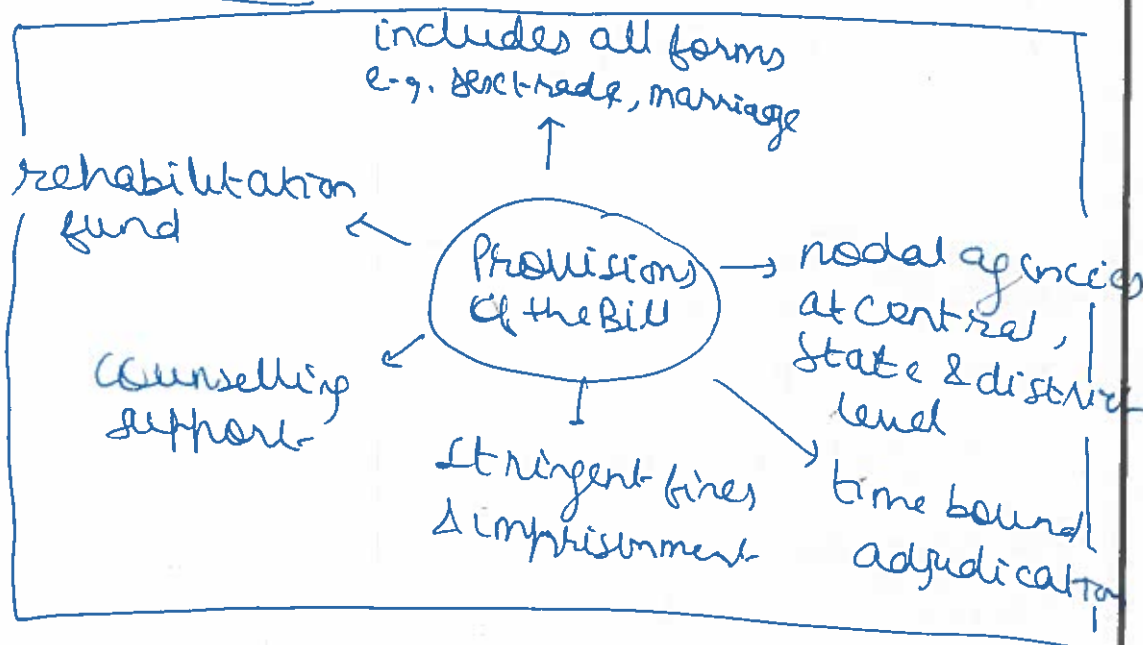 includes all forms
e.g. sextrade, marriage
rehabilitation
fund
Provisions
of the Bill
nodal agencies
at central,
state & district
level
counselling
support
stringent fines
& imprisonment
time bound
adjudication